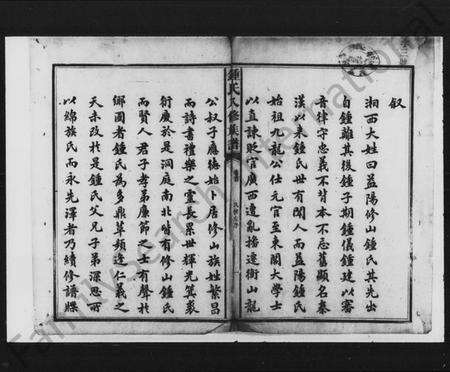 叙
湘西大姓曰益陽修山鍾氏其先出
自鍾離其後鍾子期鍾儀鍾建以審
音律守忠義不背本不忘舊顯名秦
漢以來鍾氏世有聞人而益陽鍾氏
始祖九龍公仕元官至東閣大學士
以直諫貶守廣西遭亂播遷衡山龍
鍾氏八修族譜
公叔子應德始卜居修山族姓繁昌
而詩書禮樂之靈長累世輝光箕裘
衍廣於是洞庭南北皆有修山鍾氏
而賢人君子孝弟廉節之士有聲於
鄉國者鍾氏為多鼎革頻逢仁義之
天未改於是鍾氏父兄子弟深思所
以綿族氏而永先澤者乃續修譜牒